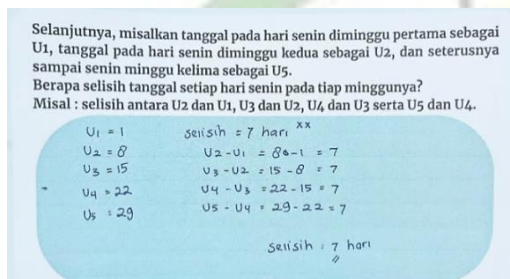 Selanjutnya, misalkan tanggal pada hari senin diminggu pertama sebagai
U1, tanggal pada hari senin diminggu kedua sebagai U2, dan seterusnya
sampai senin minggu kelima sebagai U5.
Berapa selisih tanggal setiap hari senin pada tiap minggunya?
Misal : selisih antara U2 dan U1, U3 dan U2, U4 dan U3 serta U5 dan U4.
U1 = 1 selisih = 7 hari xx
U2 = 8 U2 - U1 = 8 - 1 = 7
U3 = 15 U3 - U2 = 15 - 8 = 7
U4 = 22 U4 - U3 = 22 - 15 = 7
U5 = 29 U5 - U4 = 29 - 22 = 7
selisih : 7 hari